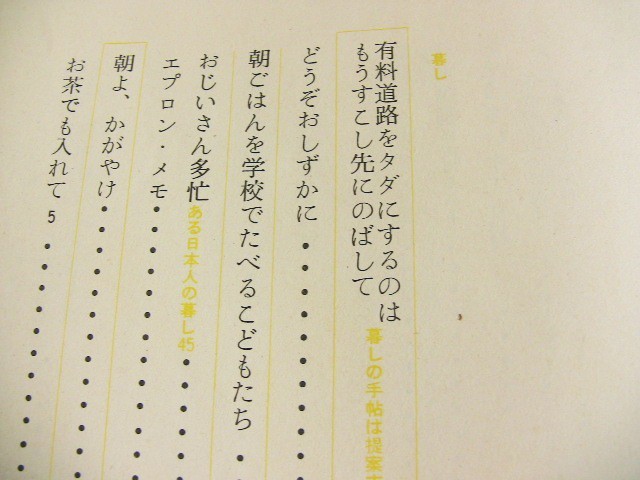 暮し
有料道路をタダにするのは
もうすこし先にのばして
暮しの手帖は提案
どうぞおしずかに
朝ごはんを学校でたべるこどもたち
おじいさん多忙 ある日本人の暮し45
エプロン・メモ
朝よ、かがやけ
お茶でも入れて 5